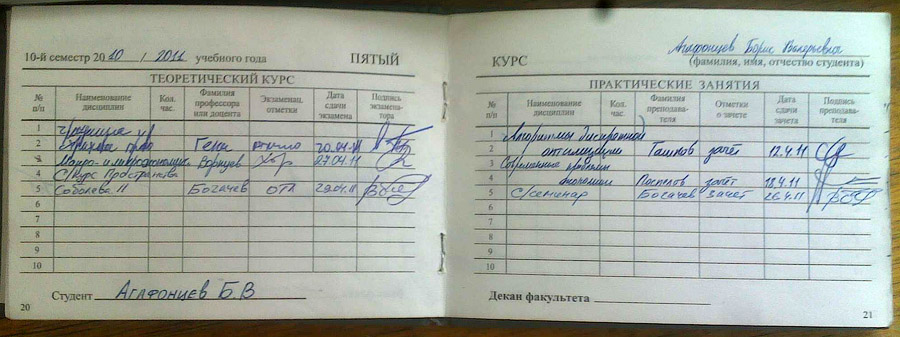 10-й семестр 2010 / 2011 учебного года ПЯТЫЙ
ТЕОРЕТИЧЕСКИЙ КУРС
№ п/п Наименование дисциплин Кол. час. Фамилия профессора или доцента Экзаменац. отметки Дата сдачи экзамена Подпись экзаменатора
1
2 право 20.04.11
3 Макро- и микроэкономика хор 27.04.11
4 С/курс Пространства
5 Соболева II Богачев отл 29.04.11
6
7
8
9
10
Студент Агафонцев Б.В
20
Агафонцев Борис Валерьевич
КУРС (фамилия, имя, отчество студента)
ПРАКТИЧЕСКИЕ ЗАНЯТИЯ
№ п/п Наименование дисциплин Кол. час. Фамилия преподавателя Отметки о зачете Дата сдачи зачета Подпись преподавателя
1 Алгоритмы дискретной
2 оптимизации Ташков зачёт 12.4.11
3 Современные проблемы
4 экономики Поспелов зачёт 18.4.11
5 С/семинар Богачев зачет 26.4.11
6
7
8
9
10
Декан факультета
21